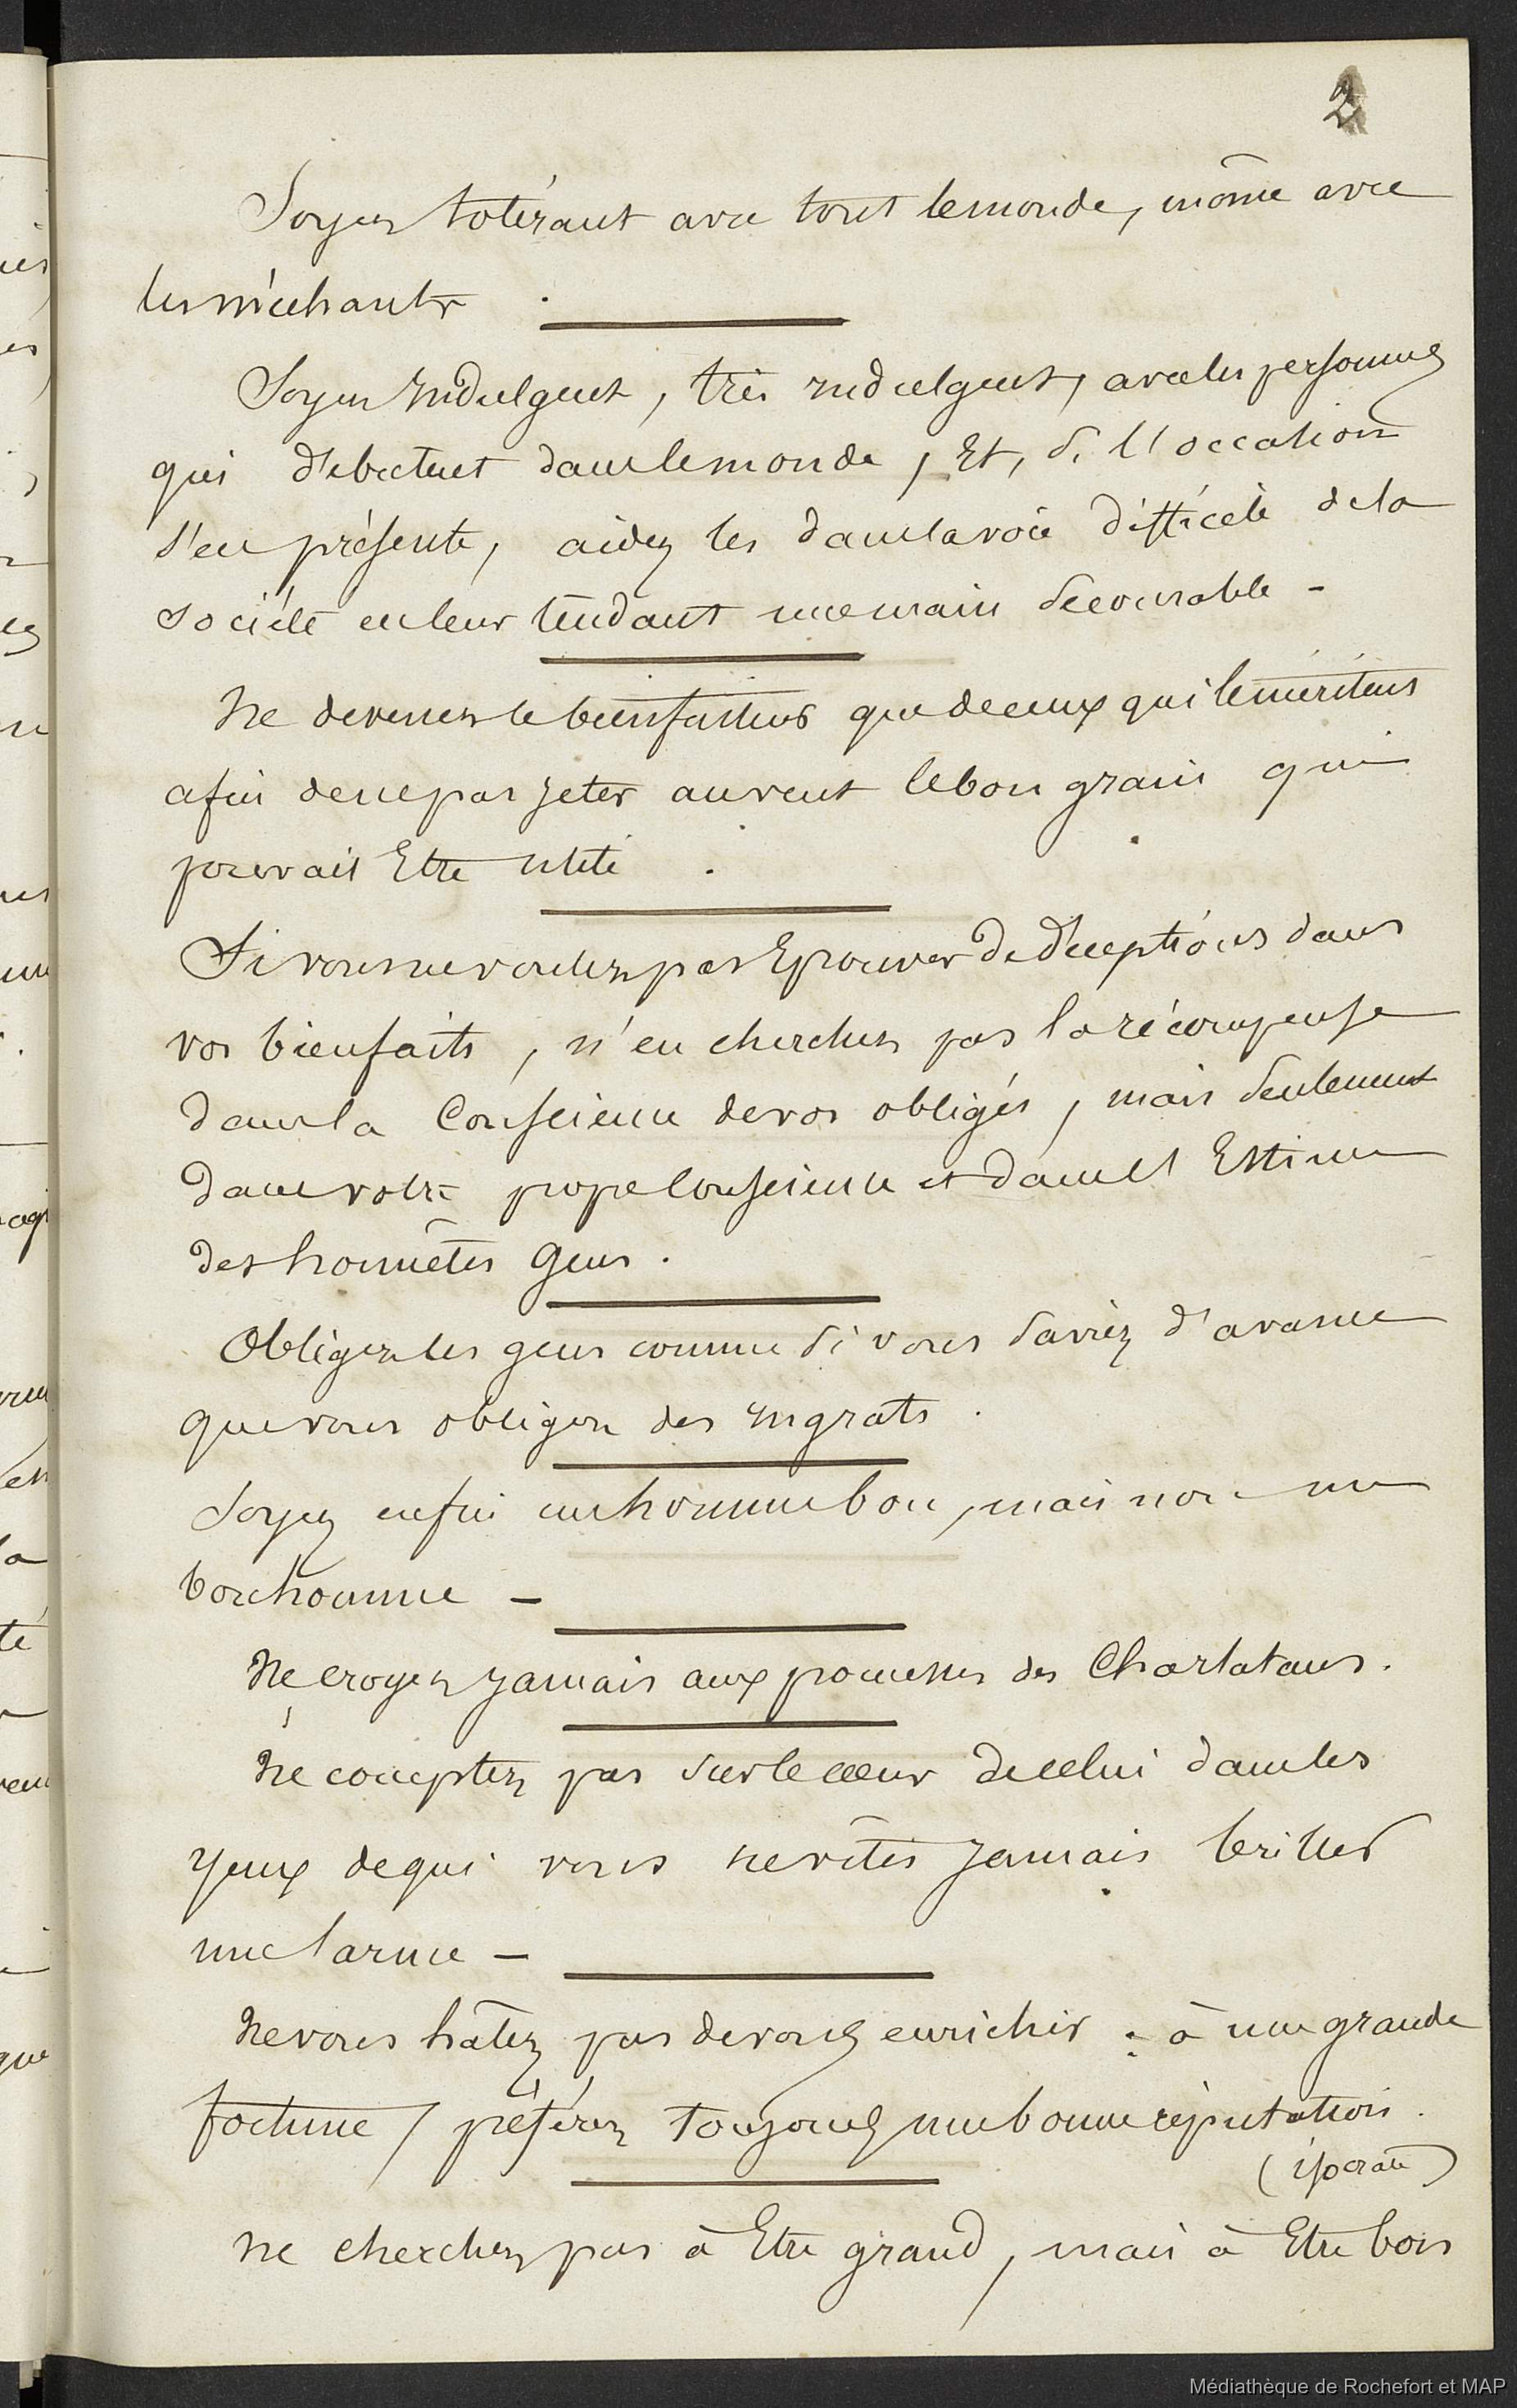 2
Soyez tolérant avec tout le monde, même avec
les méchants.
Soyez indulgent, très indulgent, avec les personnes
qui débutent dans le monde, Et, si l'occasion
s'en présente, aidez les dans la voie difficile de la
société en leur tendant une main secourable -
Ne devenez le bienfaiteur que de ceux qui le méritent
afin de ne pas jeter au vent le bon grain qui
pouvait Etre utile.
Si vous ne voulez pas Eprouver de déceptions dans
vos bienfaits, n'en cherchez pas la récompense
dans la Conscience de vos obligés, mais seulement
dans votre propre Conscience et dans l'Estime
des honnêtes gens.
Obligez les gens comme si vous saviez d'avance
que vous obligez des ingrats.
Soyez enfin un homme bon, mais non un
bonhomme -
Ne croyez jamais aux promesses des Charlatans.
Ne comptez pas sur le cœur de celui dans les
yeux de qui vous ne vîtes jamais briller
une larme -
Ne vous hâtez pas de vous enrichir : à une grande
fortune, préférez toujours une bonne réputation.
(isocrate)
Ne cherchez pas à Etre grand, mais à Etre bon
Médiathèque de Rochefort et MAP